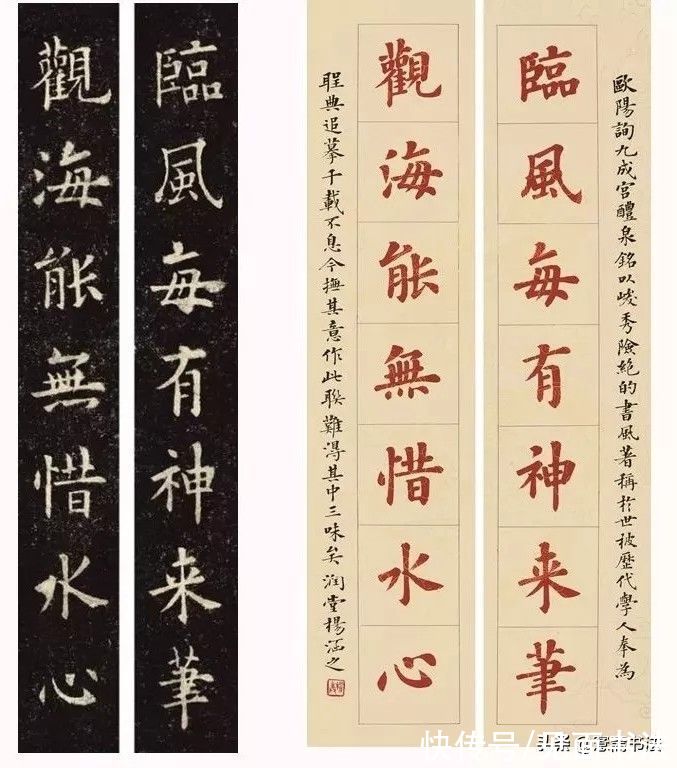 臨風每有神来筆
觀海能無惜水心
歐陽詢九成宮醴泉銘以峻秀險絶的書風著稱於世被歷代學人奉為
臨風每有神来筆
觀海能無惜水心
珵典追摹千載不息今撫其意作此聯難得其中三味矣 润堂楊涵之
头条@意壽书法